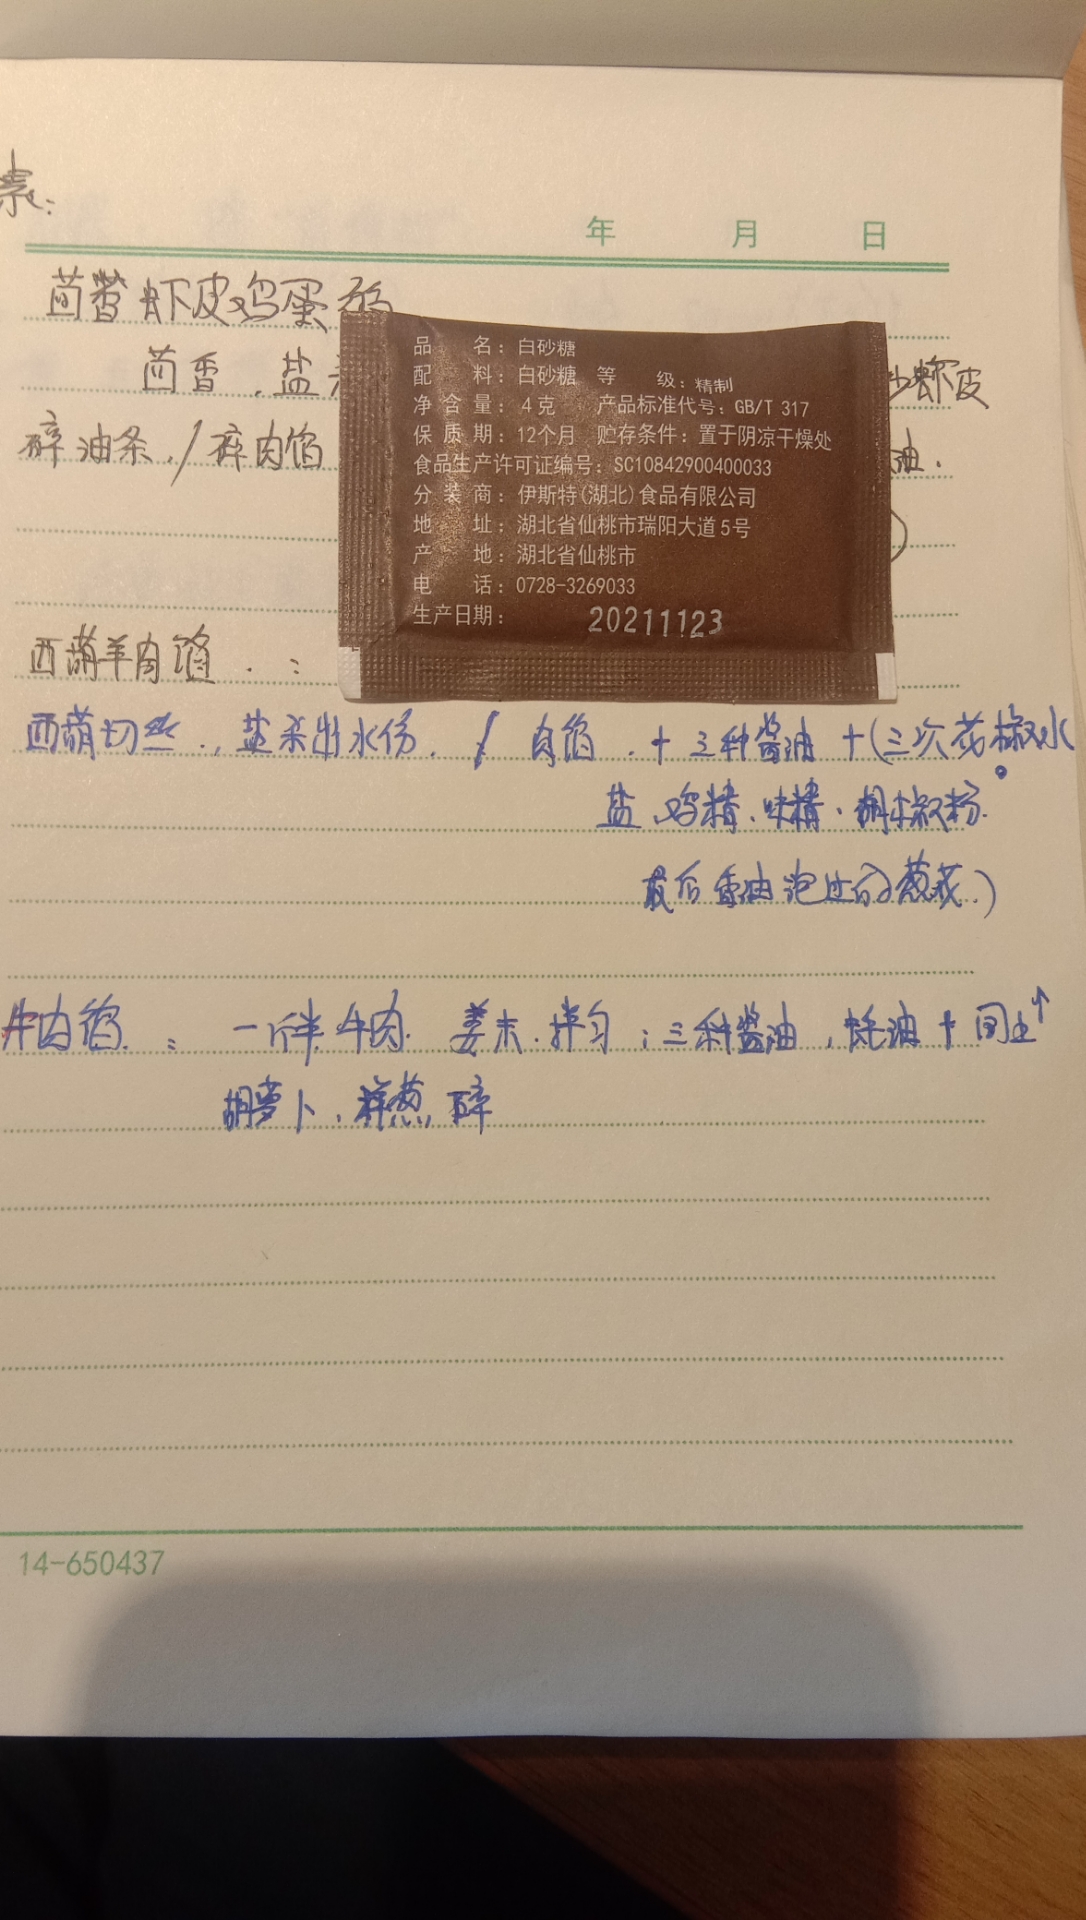 素:
年 月 日
茴香虾皮鸡蛋馅
茴香,盐
虾皮
碎油条/碎肉馅
油.
品 名:白砂糖
配 料:白砂糖 等 级:精制
净含量:4克 产品标准代号:GB/T 317
保质期:12个月 贮存条件:置于阴凉干燥处
食品生产许可证编号:SC10842900400033
分装商:伊斯特(湖北)食品有限公司
地 址:湖北省仙桃市瑞阳大道5号
产 地:湖北省仙桃市
电 话:0728-3269033
生产日期: 20211123
西葫羊肉馅.:
西葫切丝.,盐杀出水份. / 肉馅.+三种酱油+(三次花椒水。
盐、鸡精、味精、胡椒粉.
最后香油泡过的葱花.)
牛肉馅.: 一斤半牛肉.姜末.拌匀;三种酱油,蚝油+同上↑
胡萝卜,洋葱,碎
14-650437